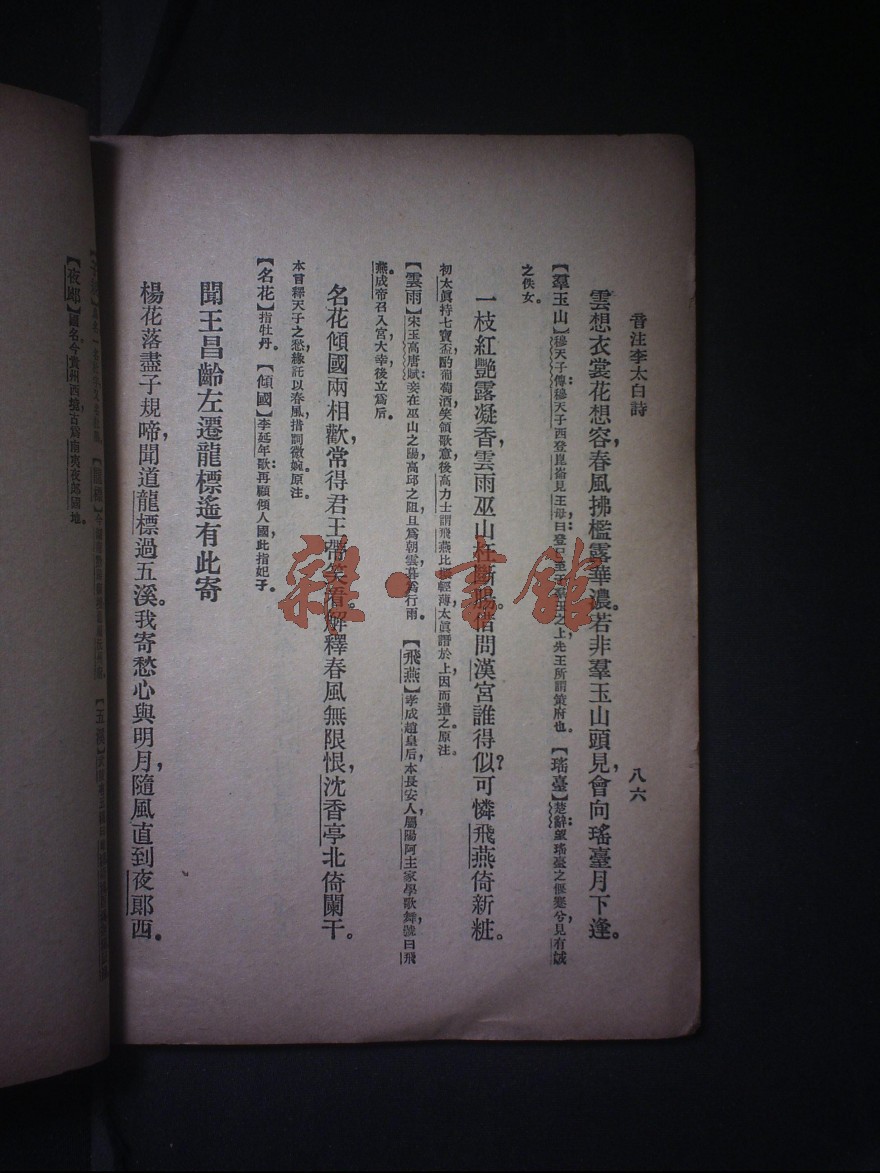 音注李太白詩
八六
雲想衣裳花想容，春風拂檻露華濃。若非羣玉山頭見，會向瑤臺月下逢。
【羣玉山】穆天子傳：穆天子西登崑崙見王母曰：登 至于羣玉之上先王所謂策府也。【瑤臺】楚辭：望瑤臺之偃蹇兮，見有娀
之佚女。
一枝紅艷露凝香，雲雨巫山枉斷腸。借問漢宮誰得似？可憐飛燕倚新粧。
初太眞持七寶盃酌葡萄酒，笑領歌意，後高力士謂飛燕比 輕薄，太眞譖於上，因而遣之。原注。
【雲雨】宋玉高唐賦：妾在巫山之陽，高邱之阻，旦爲朝雲，暮爲行雨。【飛燕】孝成趙皇后，本長安人，屬陽阿主家，學歌舞，號曰飛
燕。成帝召入宮，大幸，後立爲后。
名花傾國兩相歡，常得君王帶笑看。解釋春風無限恨，沈香亭北倚闌干。
本言釋天子之愁，緣託以春風，措詞微婉。原注。
【名花】指牡丹。【傾國】李延年歌：再顧傾人國，此指妃子。
聞王昌齡左遷龍標遙有此寄
楊花落盡子規啼，聞道龍標過五溪。我寄愁心與明月，隨風直到夜郎西。
【夜郎】國名，今貴州西境，古爲南夷夜郎國地。
雜·書館